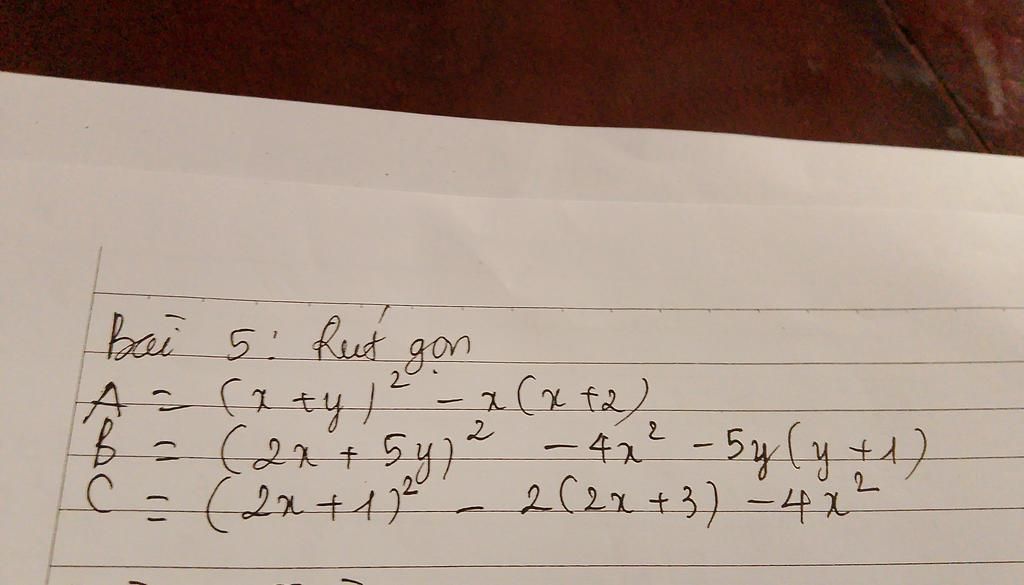 Bài 5: Rút gọn
A = (x + y)² - x(x + 2)
B = (2x + 5y)² - 4x² - 5y(y + 1)
C = (2x + 1)² - 2(2x + 3) - 4x²